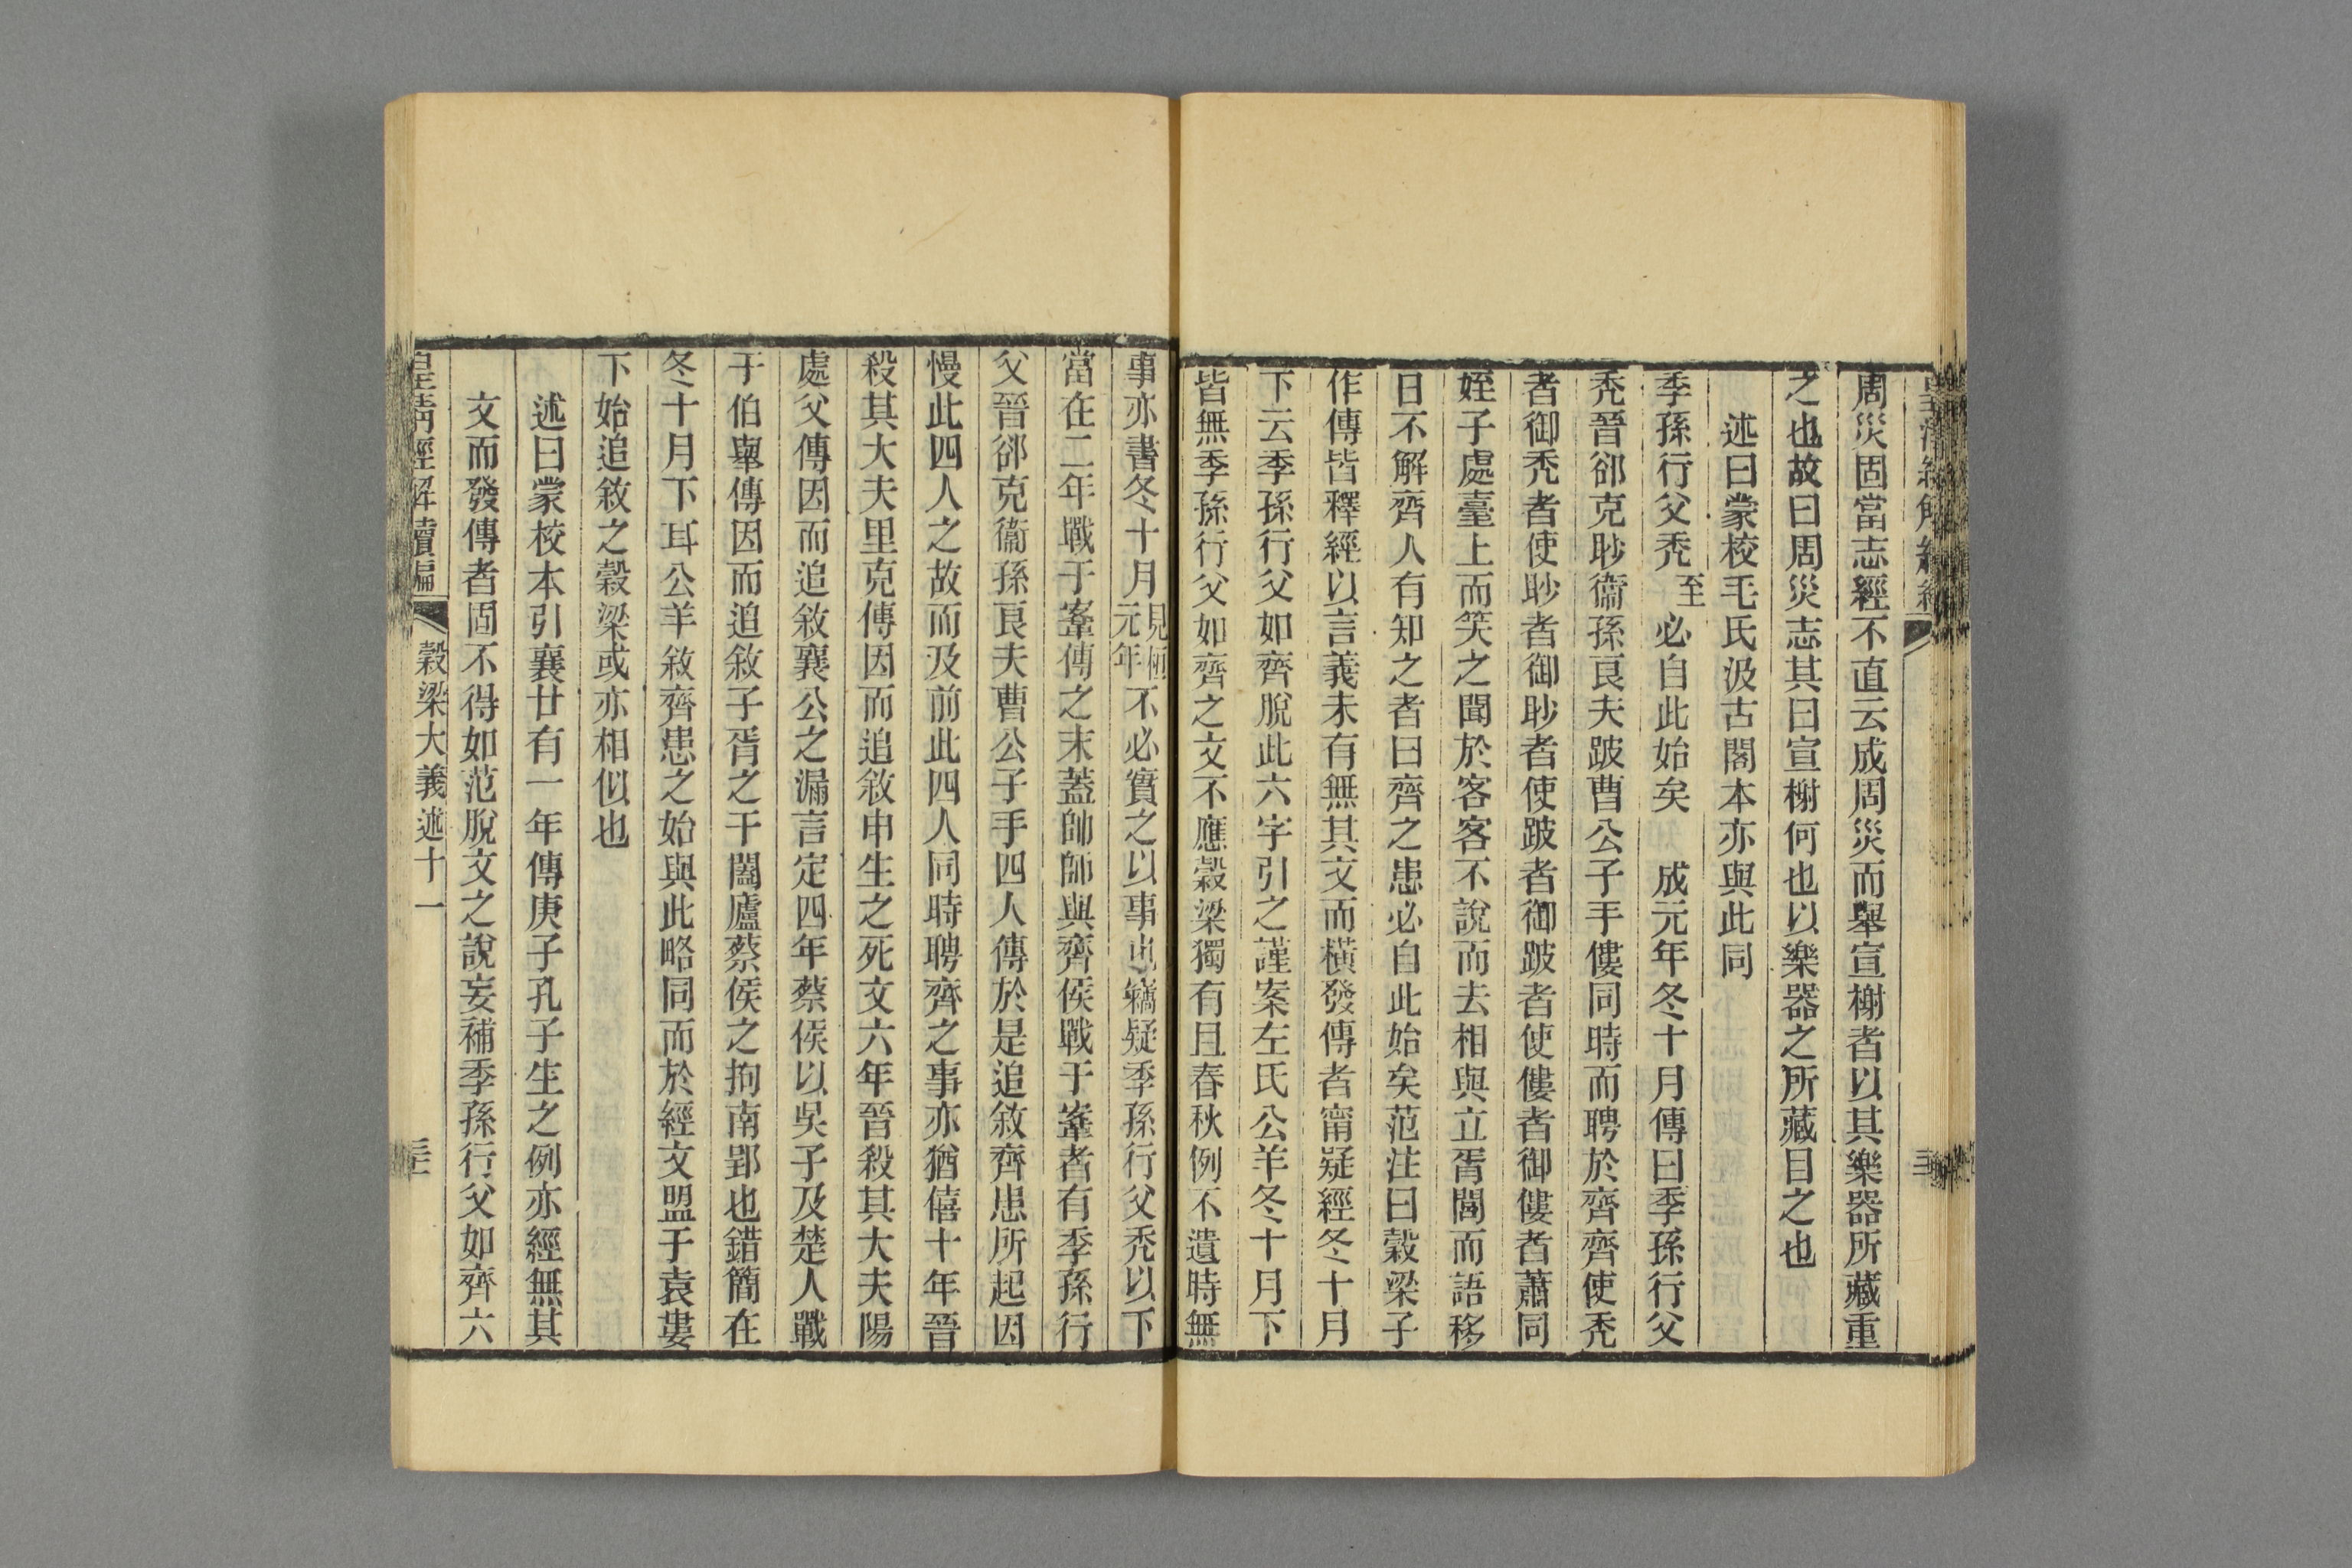 周災固當志經不直云成周災而舉宣榭者以其樂器所藏重
之也故曰周災志其曰宣榭何也以樂器之所藏目之也
述曰蒙校毛氏汲古閣本亦與此同
季孫行父禿至必自此始矣 成元年冬十月傳曰季孫行父
禿晉郤克眇衞孫良夫跛曹公子手僂同時而聘於齊齊使禿
者御禿者使眇者御眇者使跛者御跛者使僂者御僂者蕭同
姪子處臺上而笑之聞於客客不說而去相與立胥閭而語移
日不解齊人有知之者曰齊之患必自此始矣范注曰穀梁子
作傳皆釋經以言義未有無其文而橫發傳者甯疑經冬十月
下云季孫行父如齊脫此六字引之謹案左氏公羊冬十月下
皆無季孫行父如齊之文不應穀梁獨有且春秋例不遺時無
事亦書冬十月見桓元年不必實之以事也竊疑季孫行父禿以下
當在二年戰于鞌傳之末蓋帥師與齊侯戰于鞌者有季孫行
父晉郤克衞孫良夫曹公子手四人傳於是追敘齊患所起因
慢此四人之故而及前此四人同時聘齊之事亦猶僖十年晉
殺其大夫里克傳因而追敘申生之死文六年晉殺其大夫陽
處父傳因而追敘襄公之漏言定四年蔡侯以吳子及楚人戰
于伯舉傳因而追敘子胥之干闔廬蔡侯之拘南郢也錯簡在
冬十月下耳公羊敘齊患之始與此略同而於經文盟于袁婁
下始追敘之穀梁或亦相似也
述曰蒙校本引襄廿有一年傳庚子孔子生之例亦經無其
文而發傳者固不得如范脫文之說妄補季孫行父如齊六
皇淸經解續編 穀梁大義述十一